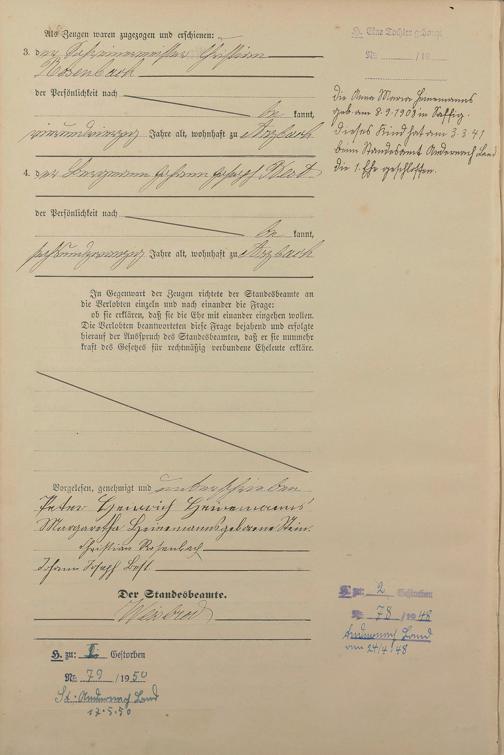 Als Zeugen waren zugezogen und erschienen:
3. der Schreinermeister Christian
Rosenbach
der Persönlichkeit nach
be kannt,
vierundvierzig Jahre alt, wohnhaft zu Arzbach
4. der Bergmann Johann Joseph Best
der Persönlichkeit nach
be kannt,
sechsundvierzig Jahre alt, wohnhaft zu Arzbach
In Gegenwart der Zeugen richtete der Standesbeamte an
die Verlobten einzeln und nach einander die Frage:
ob sie erklären, daß sie die Ehe mit einander eingehen wollen.
Die Verlobten beantworteten diese Frage bejahend und erfolgte
hierauf der Ausspruch des Standesbeamten, daß er sie nunmehr
kraft des Gesetzes für rechtmäßig verbundene Eheleute erkläre.
Vorgelesen, genehmigt und unterschrieben
Peter Heinrich Heinemanns
Margaretha Heinemanns geborene Stein.
Christian Rosenbach
Johann Joseph Best
Der Standesbeamte.
H. zu: 1 Gestorben
Nr. 79 / 1950
St. Andernach Land
17.5.50
H. Eine Tochter
Nr. / 19
die Anna Maria Heinemanns
geb. am 8.9.1909 in Saffig.
Dieses Kind hat am 3.3.41
beim Standesamt Andernach Land
die 1. Ehe geschlossen.
H. zu: 2 Gestorben
Nr. 78 / 1948
Andernach Land
am 24/4.48